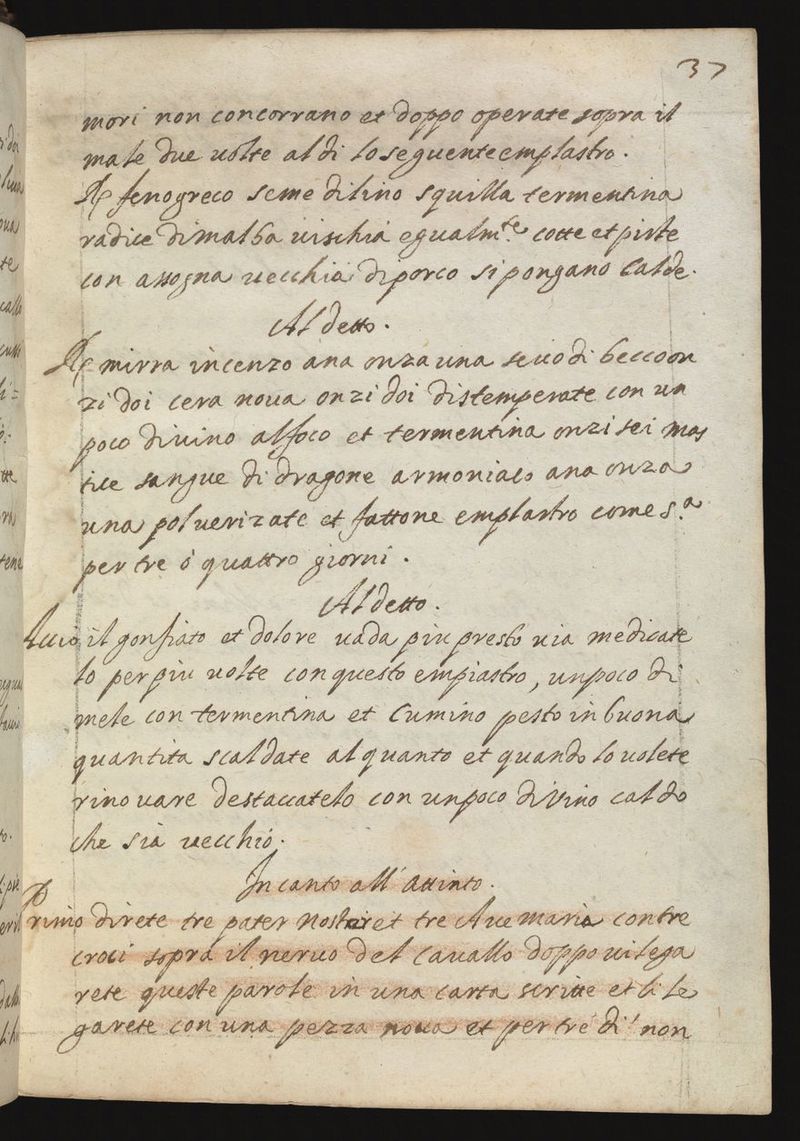 37
mori non concorrano et doppo operate sopra il
male due uolte al di lo seguente emplastro.
℞ fenogreco seme di lino squilla termentina
radice di malba uischia egualm.te cotte et piste
con assogna uecchia di porco si pongano calde.
Al detto.
℞ mirra incenzo ana onza una seuo di becco on
zi doi cera noua onzi doi distemperate con un
poco di uino al foco et termentina onzi sei mas
tice sangue di dragone armoniaco ana onza
una poluerizate et fattone emplastro come s.a
per tre ò quattro giorni.
Al detto.
Acciò il gonfiato et dolore uada piu presto uia medicate
lo per piu uolte con questo empiastro, un poco di
mele con termentina et Cumino pesto in buona
quantita scaldate al quanto et quando lo uolete
rinouare destaccatelo con un poco di Vino caldo
che sia uecchio.
Incanto all' attinto.
Primo direte tre pater nostri et tre Aue maria con tre
croci sopra il neruo del Cauallo doppo ui lega
rete queste parole in una carta scritte et li le
garete con una pezza noua et per tre dì non